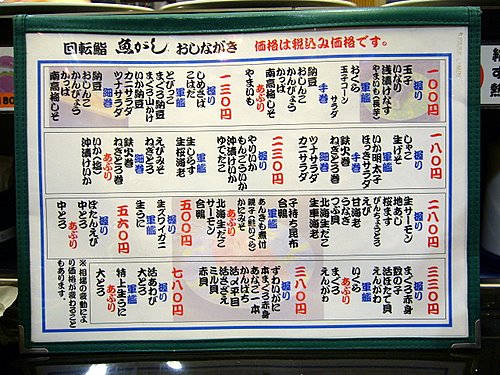 回転鮨 魚がし おしながき 価格は税込み価格です。
一〇〇円
握り
玉子
いなり
浅漬けなす
やまいも(長芋)
軍艦
おくら
玉子コーン
サラダ
手巻
納豆
おしんこ
かんぴょう
かっぱ
あぶり
南高梅しそ
やまいも
一三〇円
握り
しめさば
こはだ
軍艦
とびっこ
まぐろ納豆
まぐろ山かけ
カニサラダ
ツナサラダ
細巻
納豆
おしんこ
かんぴょう
かっぱ
南高梅しそ
一八〇円
握り
しゃこ
生げそ
軍艦
いか明太子
ほっきサラダ
手巻
鉄火巻
ねぎとろ巻
ツナサラダ
カニサラダ
二三〇円
握り
やりいか
もんごういか
沖漬けいか
ゆでだこ
軍艦
生しらす
生桜海老
えびみそ
ねぎとろ
細巻
鉄火巻
ねぎとろ巻
あぶり
いか(塩)
沖漬けいか
二八〇円
握り
生サーモン
地あじ
桜ます
びんちょうとろ
えび
甘海老
うなぎ
つぶ貝
北海生だこ
生車海老
軍艦
子持ち昆布
合鴨
あん肝煮付
親子(鮭いくら)
かにみそ
あぶり
北海生だこ
サーモン
合鴨
五〇〇円
握り
生ズワイガニ
軍艦
生うに
五六〇円
握り
ぼたんえび
中とろ
あぶり
中とろ
三三〇円
握り
まぐろ赤身
数の子
活ほたて貝
えんがわ
軍艦
いくら
あぶり
まぐろ
えんがわ
三八〇円
握り
ずわいがに
本まぐろ赤身
あなご一本
かんぱち
活〆平目
活さざえ
ミル貝
赤貝
七八〇円
握り
活あわび
大とろ
軍艦
特上生うに
あぶり
大とろ
※相場の変動によ
り価格が変わること
もあります。